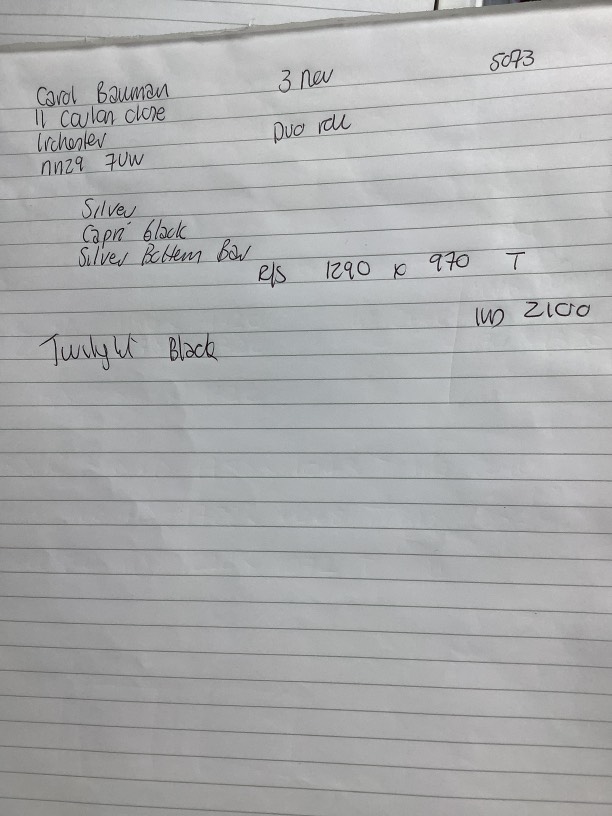 Carol Bauman 3 nev 5073
11 Coulan close
Irchester Duo roll
nn29 7UW
Silver
Capri black
Silver Bottem Bar
R/S 1290 x 970 T
1W) 2100
Twilight Black